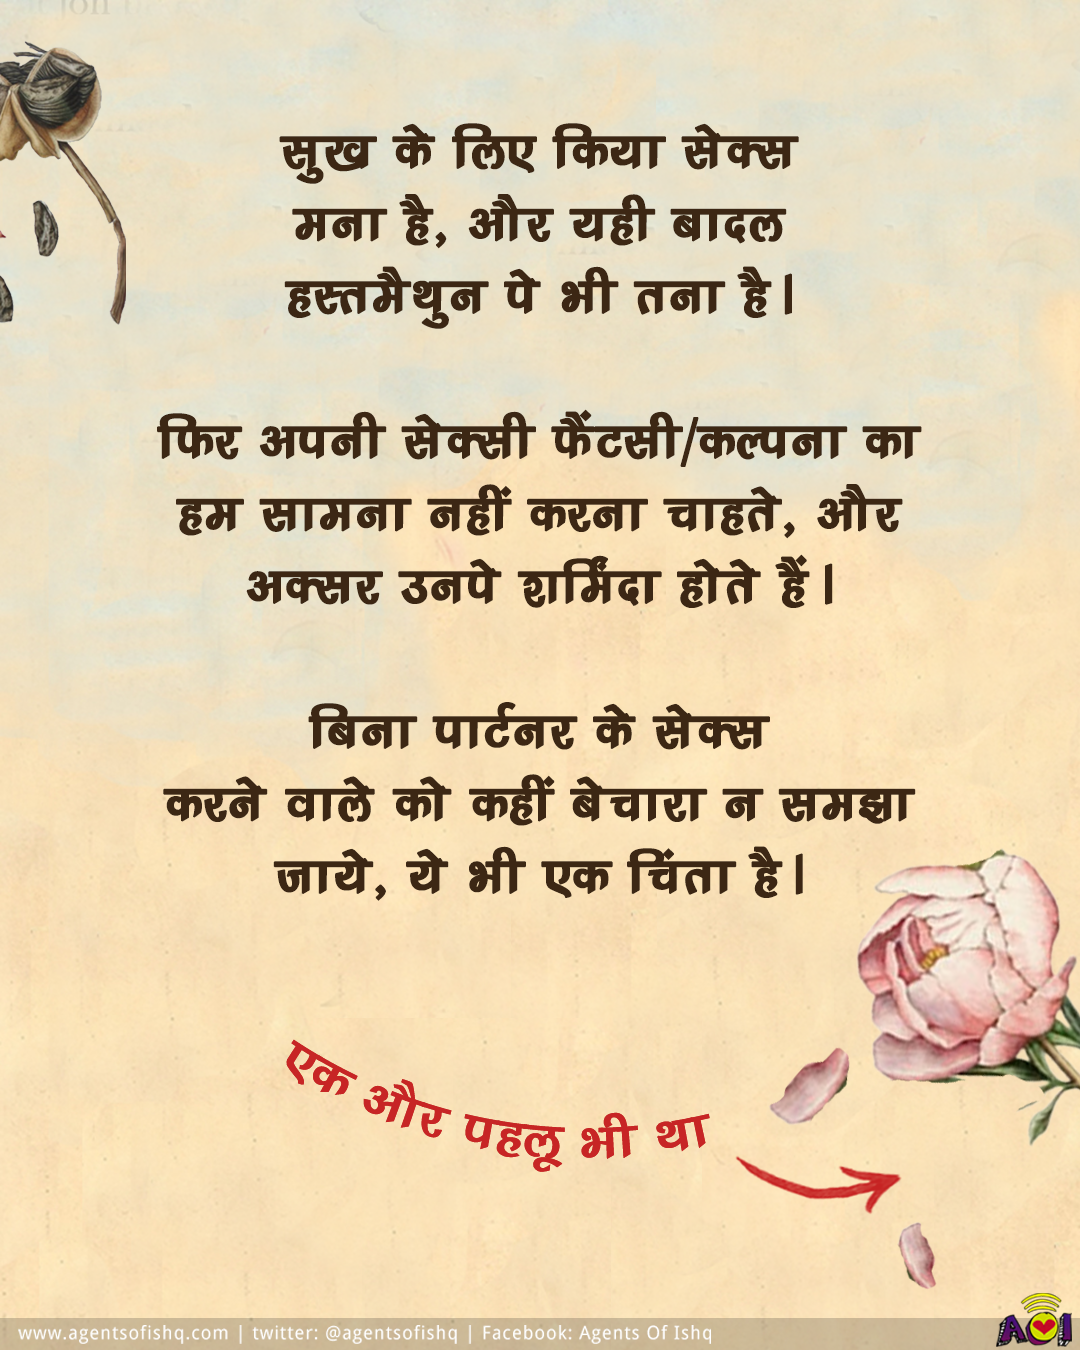 सुख के लिए किया सेक्स
मना है, और यही बादल
हस्तमैथुन पे भी तना है।
फिर अपनी सेक्सी फैंटसी/कल्पना का
हम सामना नहीं करना चाहते, और
अक्सर उनपे शर्मिंदा होते हैं।
बिना पार्टनर के सेक्स
करने वाले को कहीं बेचारा न समझा
जाये, ये भी एक चिंता है।
एक और पहलू भी था
www.agentsofishq.com | twitter: @agentsofishq | Facebook: Agents Of Ishq
AOI